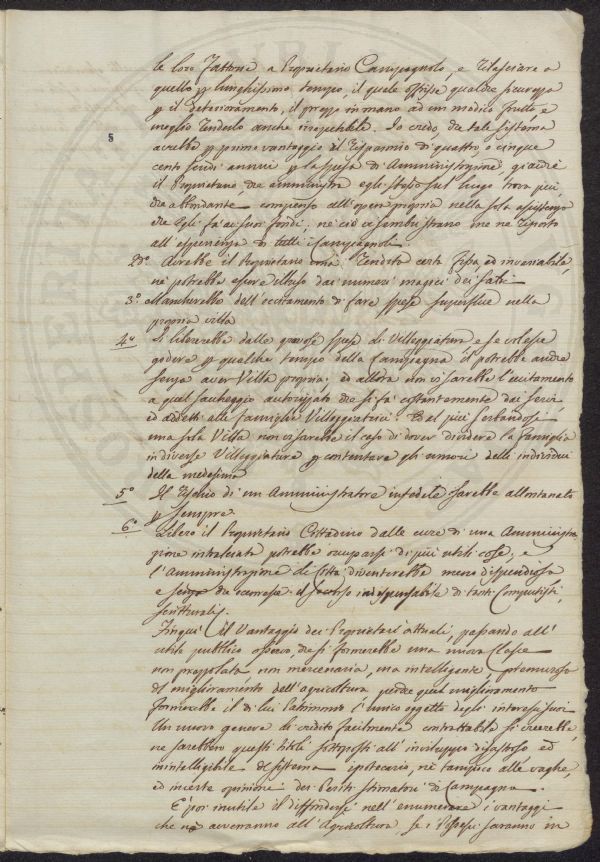 le loro Fattorie a Proprietario Campagnolo, e rilasciare a
quello p lunghissimo tempo, il quale offrisse qualche sicurezza
p il deterioramento, il prezzo in mano ad un modico frutto, e
meglio renderlo anche irrepetibile. Io credo, che tale sistema
avrebbe p primo vantaggio il risparmio di quattro, o cinque
cento scudi annui p la spesa di Amministrazione, giacchè
il Proprietario che amministra egli stesso sul luogo trova più
che abbondante compenso all'opera propria nella sola assistenza
che Egli fa ai suoi fondi, nè ciò vi sembri strano me ne riporto
all'esperienza di tutti i Campagnoli.
2do Avrebbe il Proprietario una Rendita certa fissa, ed invariabile,
nè potrebbe essere illuso dai numeri magici dei fatti
3o Mancherebbe dell'eccitamento di fare spese superflue nella
propria villa
4o Si libererebbe dalle gravose spese di Villeggiatura e se volesse
godere p qualche tempo della Campagna il potrebbe anche
senza aver Villa propria; ed allora non vi sarebbe l'eccitamento
a quel saccheggio autorizzato che si fà costantemente dai servi,
ed addetti alle famiglie Villeggiatrici. Ed al più serbandosi
una sola Villa non vi sarebbe il caso di dover dividere la famiglia
in diverse Villeggiature p contentare gli umori delli individui
della medesima
5o Il rischio di un Amministratore infedele sarebbe allontanato
p sempre.
6o Libero il Proprietario Cittadino dalle cure di una Amministra
zione intralciata potrebbe occuparsi di più utili cose, e
l'Amministrazione di Città diventerebbe meno dispendiosa
e senza che il soccorso indispensabile di tanti Computisti,
scritturali.
Finqui il Vantaggio dei Proprietari attuali, passando all'
utile pubblico osservo, che si formerebbe una nuova Classe
non prezzolata, non mercenaria, ma intelligente, premurosa
del miglioramento dell'agricoltura perchè quel miglioramento
formerebbe il di lui Patrimonio l'unico oggetto degli interessi suoi
Un nuovo genere di credito facilmente contrattabile si creerebbe,
ne sarebbero questi titoli sottoposti all'inviluppo disastroso ed
inintelligibile del sistema ipotecario, nè tampoco alle vaghe,
ed incerte opinione dei Periti stimatori di Campagna.
E' poi inutile il diffondersi nell'enumerare i vantaggi
che ne avverranno all'Agricoltura, se i Possessi saranno in